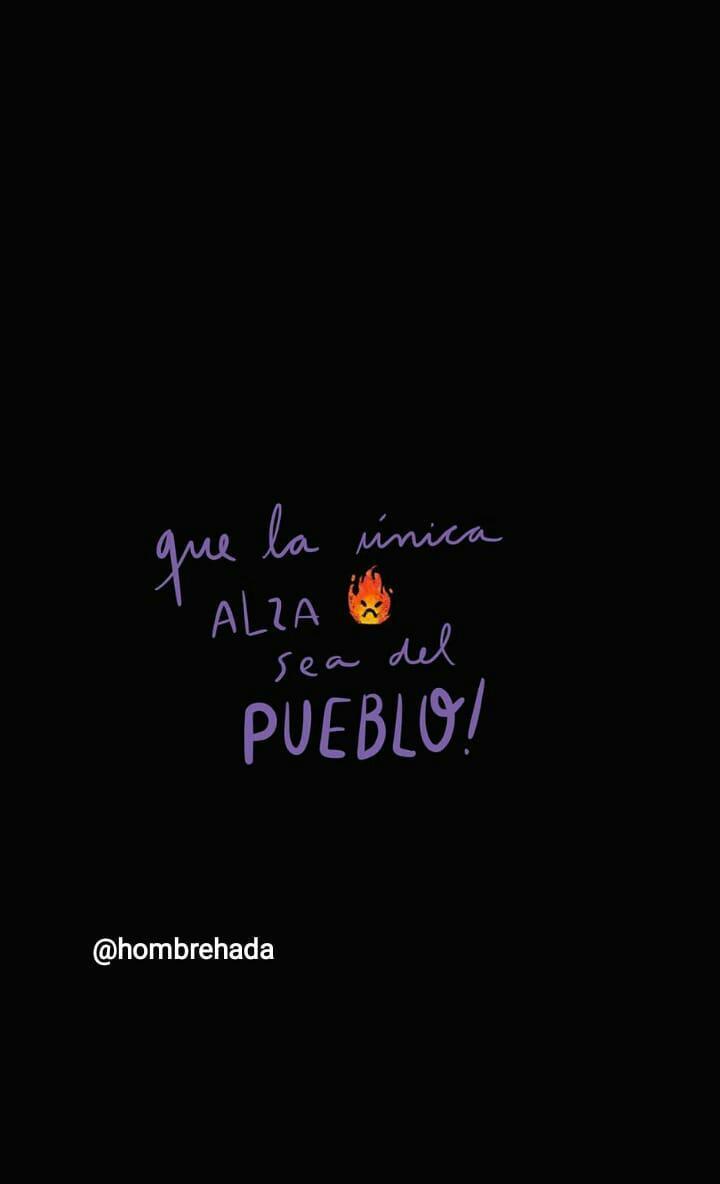 que la única
ALZA
sea del
PUEBLO!
@hombrehada